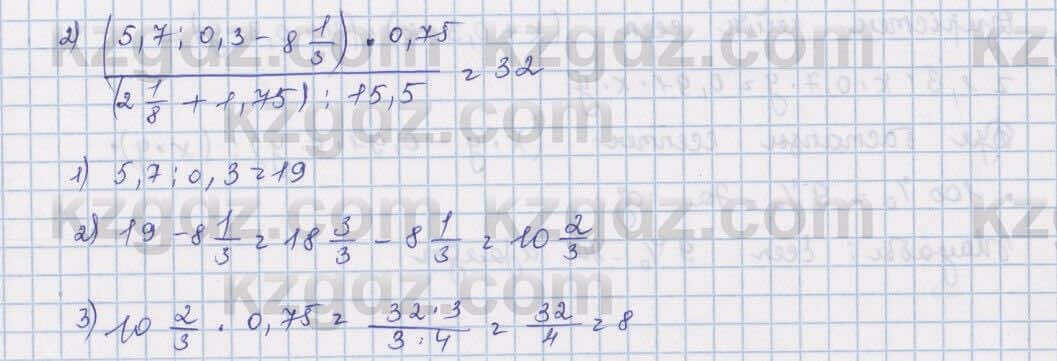 2) (5,7 : 0,3 - 8 1/3) · 0,75 / (2 1/8 + 1,75) : 15,5 = 32
kzgdz.com
1) 5,7 : 0,3 = 19
2) 19 - 8 1/3 = 18 3/3 - 8 1/3 = 10 2/3
3) 10 2/3 · 0,75 = 32·3 / 3·4 = 32/4 = 8